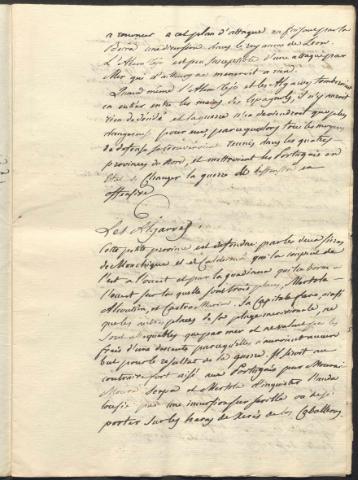 a renoncer a cet plan d'attaque en faisant par la
Beira une diversion dans le royaume de Leon.
L'Alem Tejo est peu susceptible d'une attaque par
Mer, qui d'ailleurs ne meneroit a rien.
Quand même l'Alem Tejo et les Algarves tomberoient
en entier entre les mains des Espagnols, il n'y auroit
rien de décidé et la guerre n'en deviendroit que plus
dangereuse pour eux, parce qu'alors tous les moyens
de defense se trouveroient reunis dans les quatre
provinces du Nord, et mettroient les Portugais en
état de changer la guerre de defensive en
offensive
Les Algarves,
Cette petite province est defendue par les deux Sierras
de Monchique et de Caldeirão qui la coupent de
l'est a l'ouest et par la Guadiana qui la borne
a l'ouest sur laquelle sont trois places, Mertola
Alcoutim, et Castro Marim. Sa Capitale Faro, ainsi
que les autres places de sa plage meridionale, ne
sont attaquables que par mer et ne valent pas les
frais d'une descente parce qu'elles n'auroient aucun
but pour le resultat de la guerre. Il seroit au
contraire fort aisé aux Portugais par Mourão
Moura Serpa et Mertola d'inquieter l'Anda
lousie par une incursion sur Seville ou de se
porter sur les haras de Xerès de los Caballeros